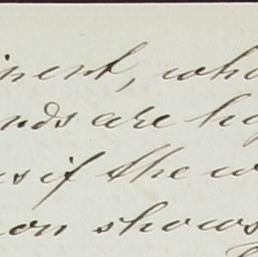 inent, who
nds are hi
as if the w
on shows